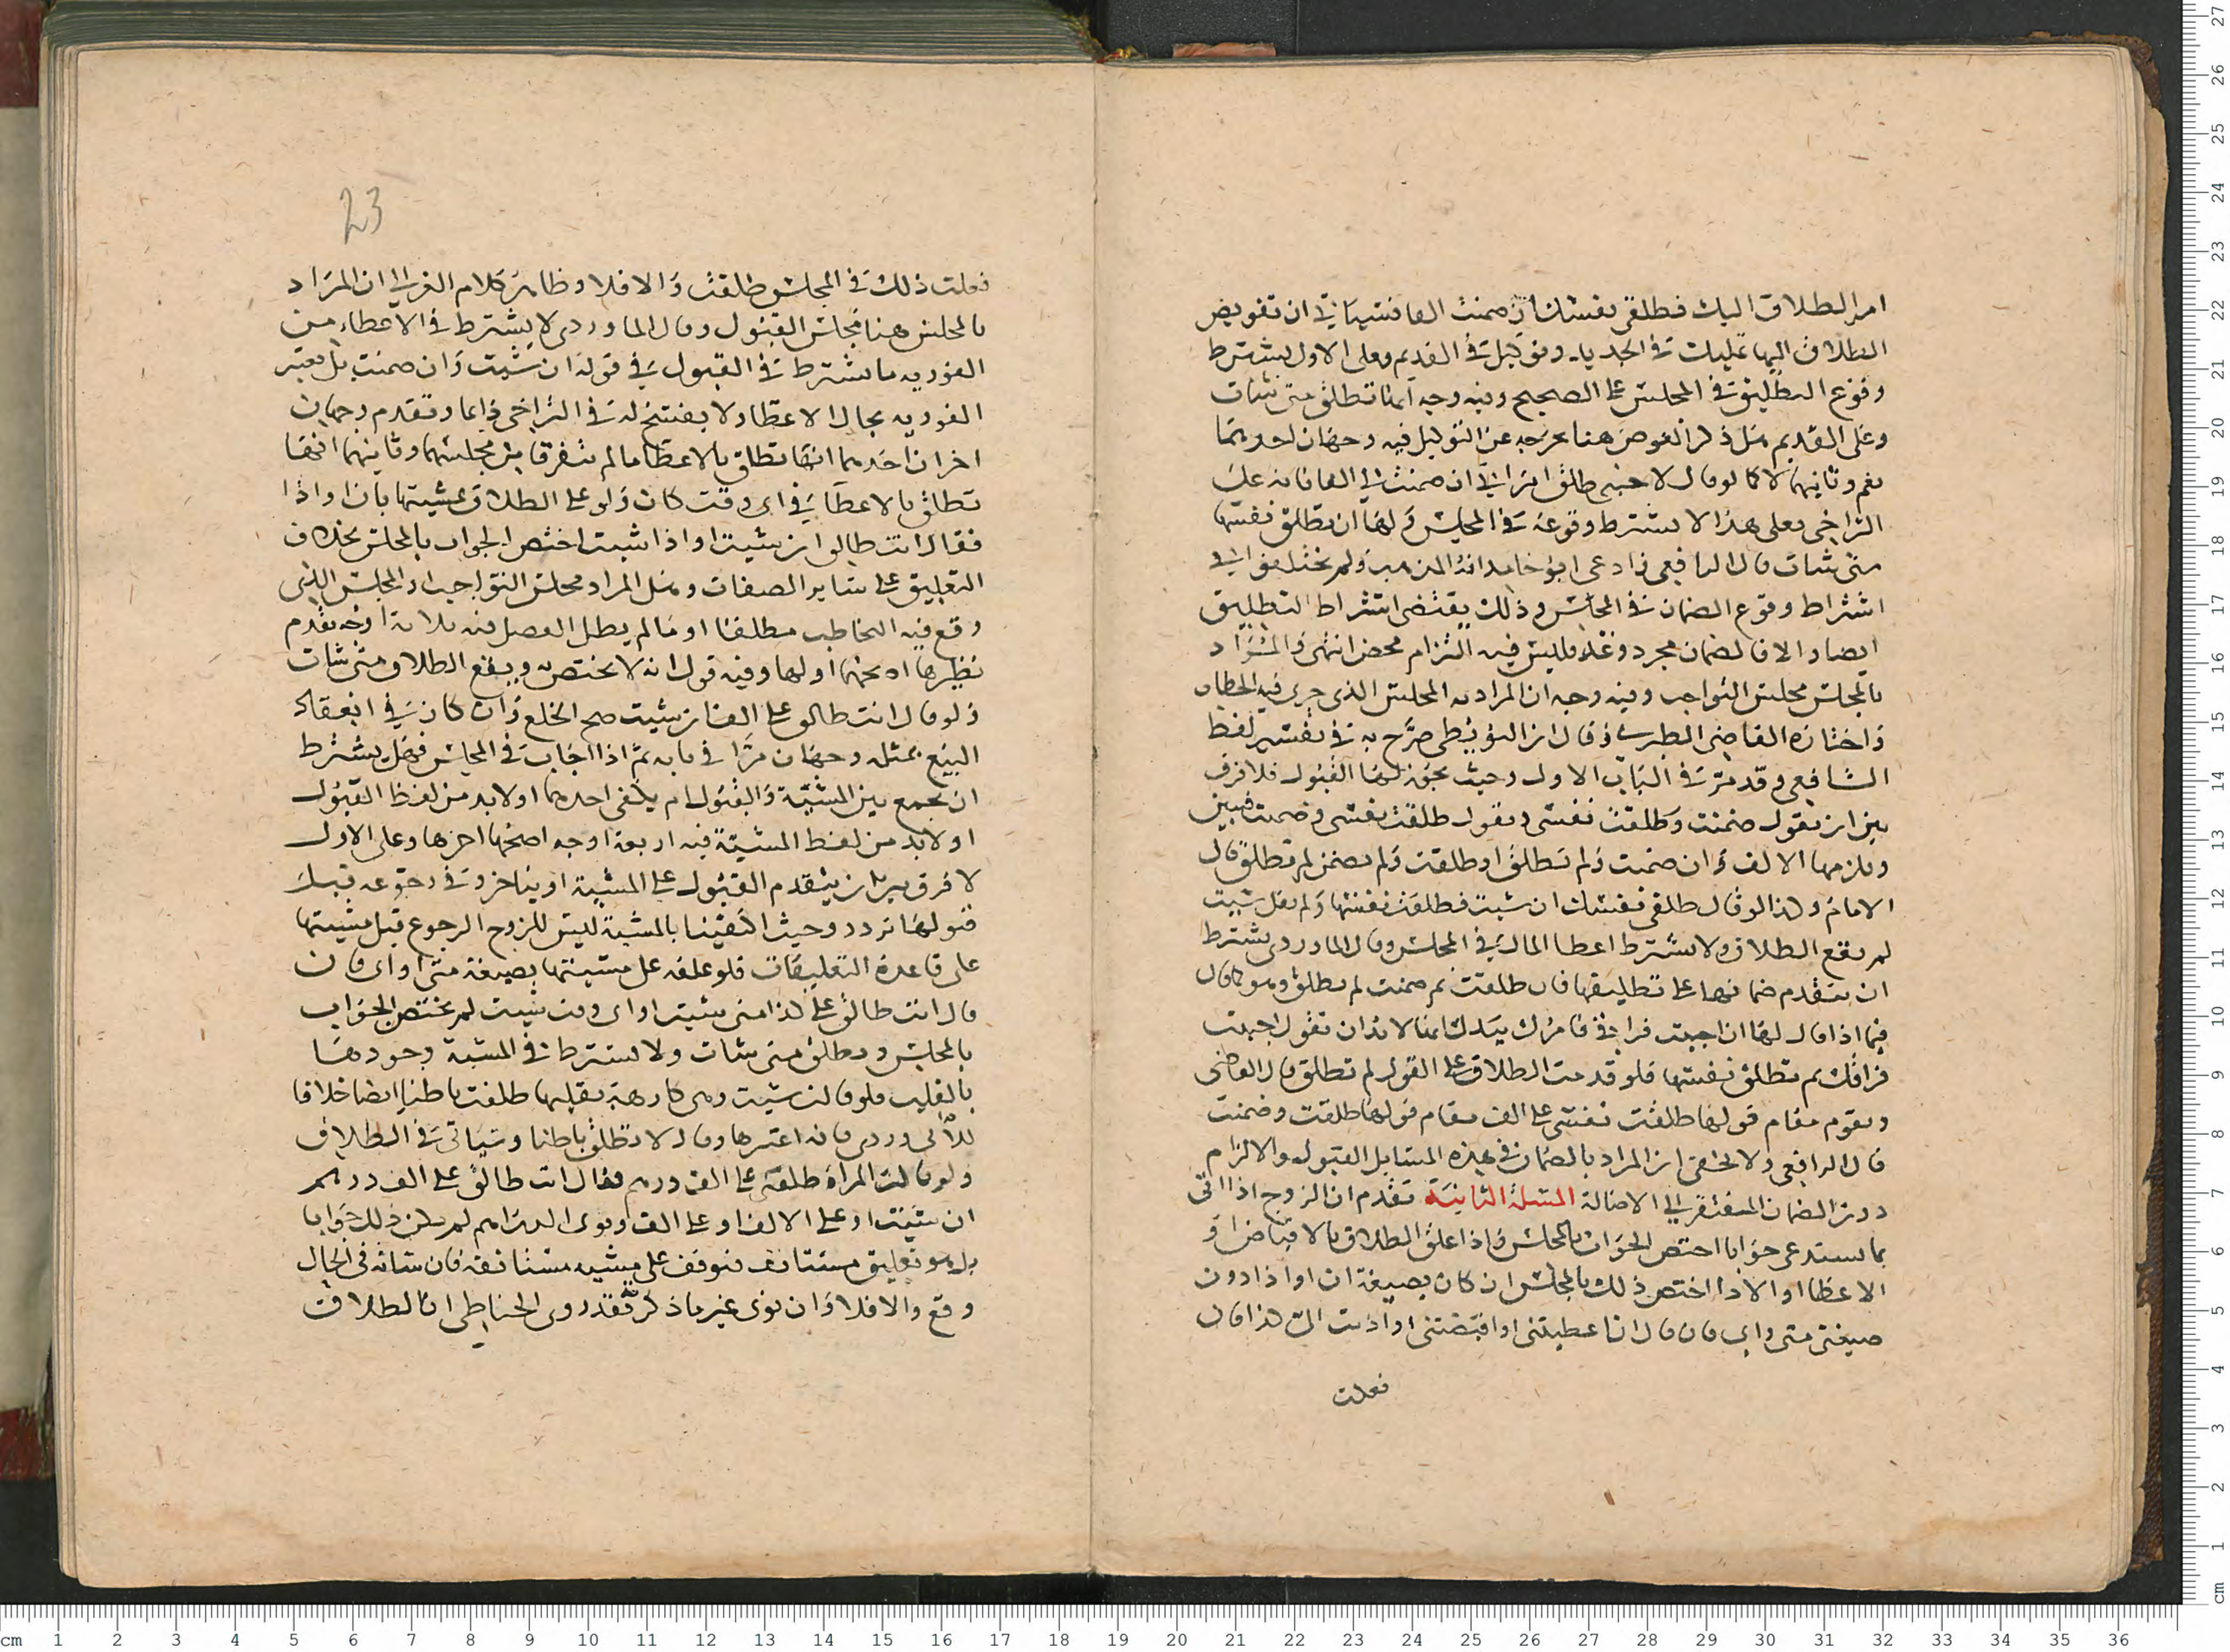 امر الطلاق اليك فطلقى نفسك ان ضمنت الفا فسياتى ان تفويض
الطلاق اليها تمليك فى الجديد وتوكيل فى القديم وعلى الاول يشترط
وقوع التطليق فى المجلس على الصحيح وفيه وجه انها تطلق متى شات
وعلى القديم هل ذكر العوض هنا يخرجه عن التوكيل فيه وجهان احدهما
نعم وثانيهما لا كما لو قال لاجنبى طالق امراتى ان ضمنت لى الفا فانه على
التراخى فعلى هذا لا يشترط وقوعه فى المجلس ولها ان تطلق نفسها
متى شات قال الرافعى وادعى ابو حامد انه المذهب ولم يختلفوا فى
اشتراط وقوع الضمان فى المجلس وذلك يقتضى اشتراط التطليق
ايضا والا فالضمان مجرد وعد فليس فيه التزام محض انتهى والمراد
بالمجلس مجلس التواجب وفيه وجه ان المراد به المجلس الذى جرى فيه الخطاب
واختاره القاضى الطبرى وقال ان البويطى صرح به فى تفسير لفظ
الشافعى وقد مر فى الباب الاول وحيث يجوز لها القبول فلا فرق
بين ان تقول ضمنت وطلقت نفسى وتقول طلقت نفسى وضمنت فتبين
ويلزمها الالف وان ضمنت ولم تطلق او طلقت ولم تضمن لم تطلق قال
الامام وكذا لو قال طلقى نفسك ان شيت فطلقت نفسها ولم تقل شيت
لم يقع الطلاق ولا يشترط اعطا المال فى المجلس وقال الماوردى يشترط
ان يتقدم ضمانها على تطليقها فان طلقت ثم ضمنت لم تطلق وهو كما قال
فيما اذا قال لها ان اجبت فراقى فامرك بيدك انما لا بد ان تقول اجبت
فراقك ثم تطلق نفسها فلو قدمت الطلاق على القول لم تطلق قال القاضى
ويقوم مقام قولها طلقت نفسى على الف مقام قولها طلقت وضمنت
قال الرافعى ولا يخفى ان المراد بالضمان فى هذه المسايل القبول والالزام
دون الضمان المفتقر الى الاصالة المسئلة الثانية تقدم ان الزوج اذا اتى
بما يستدعى جوابا اختص الجواب بالمجلس واذا علق الطلاق بالاقباض او
الاعطا او الادا اختص ذلك بالمجلس ان كان بصيغة ان او اذا دون
صيغتى متى واى فان قال ان اعطيتنى او اقبضتنى او اديت الى كذا قال
فعلت
23
فعلت ذلك فى المجلس طلقت والا فلا وظاهر كلام الغزالى ان المراد
بالمجلس هنا مجلس القبول وقال الماوردى لا يشترط فى الاعطاء من
الفوريه ما يشترط فى القبول فى قوله ان شيت وان ضمنت بل يعتبر
الفوريه بحال الاعطا ولا يفسخ له فى التراخى دايما وتقدم وجهان
اخران احدهما انها تطلق بالاعطا ما لم يتفرقا من مجلسهما وثانيهما انها
تطلق بالاعطا فى اى وقت كان ولو على الطلاق بمشيتها بان او اذا
فقال انت طالق ان شيت او اذا شيت اختص الجواب بالمجلس بخلاف
التعليق على ساير الصفات وهل المراد مجلس التواجب او المجلس الذى
وقع فيه التخاطب مطلقا او ما لم يطل الفصل فيه ثلاثة اوجه تقدم
نظيرها اصحها اولها وفيه قول انه لا يختص ويقع الطلاق متى شات
ولو قال انت طالق على الف ان شيت صح الخلع وان كان فى انعقاد
البيع بمثله وجهان مرا فى بابه ثم اذا اجابت فى المجلس فهل يشترط
ان تجمع بين المشيئة والقبول ام يكفى احدهما او لا بد من لفظ القبول
او لا بد من لفظ المشيئة فيه اربعة اوجه اصحها اخرها وعلى الاول
لا فرق بين ان يتقدم القبول على المشيئة او يتاخر وفى رجوعه قبل
قبولها تردد وحيث اكتفينا بالمشية ليس للزوج الرجوع قبل مشيتها
على قاعدة التعليقات فلو علقه على مشيئتها بصيغة متى او اى فان
قال انت طالق على كذا متى شيت او اى وقت شيت لم يختص الجواب
بالمجلس وتطلق متى شات ولا يشترط فى المشية وجودها
بالقلب فلو قالت شيت وهى كارهة بقلبها طلقت باطنا ايضا خلافا
للابى وردى فانه اعتبرها وقال لا تطلق باطنا وسياتى فى الطلاق
ولو قالت المراة طلقنى على الف درهم فقال انت طالق على الف درهم
ان شيت او على الالف او على الف ونوى الدراهم لم يكن ذلك جوابا
بل هو تعليق مستانف فتوقف على مشيه مستانفة فان شات فى الحال
وقع والا فلا وان نوى غير ما ذكرته فقد روى الحناطى ان الطلاق